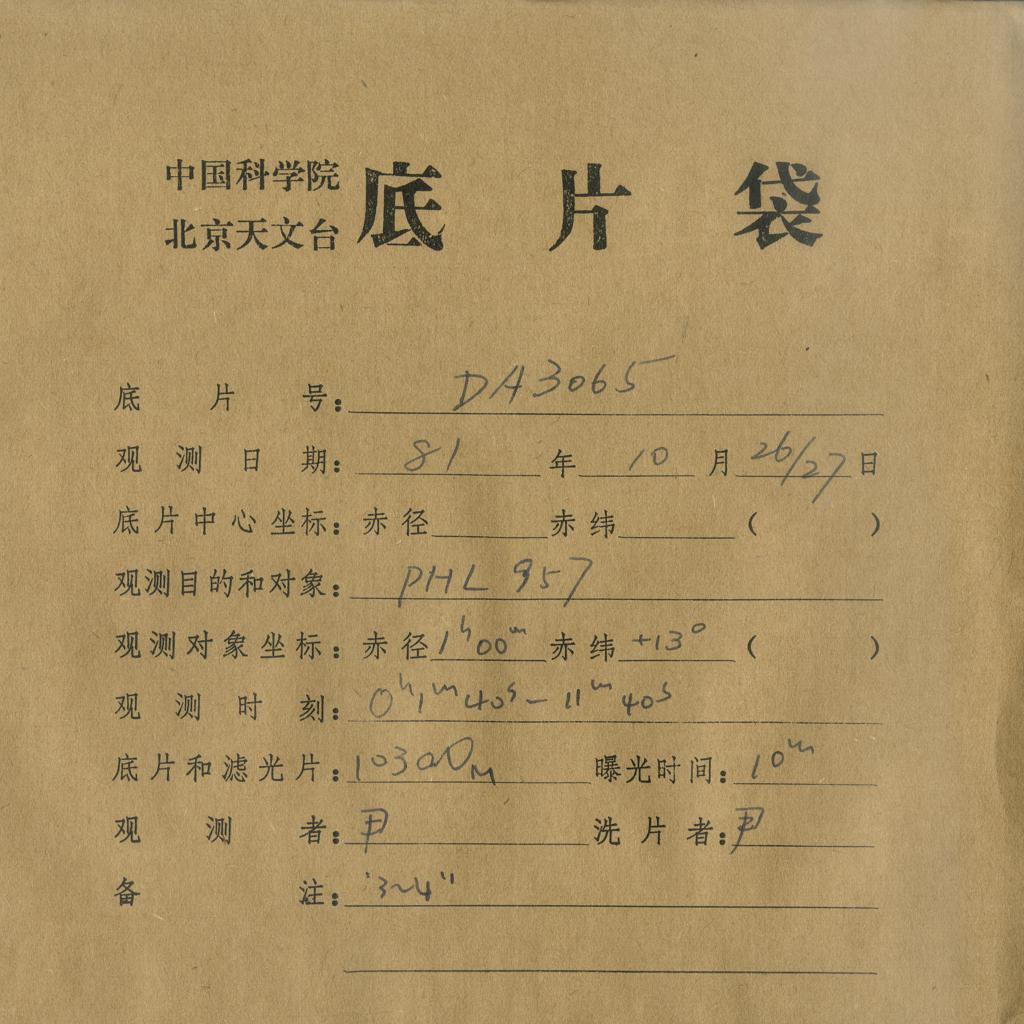 中国科学院
北京天文台
底片袋
底片号: DA3065
观测日期: 81年10月26/27日
底片中心坐标: 赤径 赤纬 ( )
观测目的和对象: PHL 957
观测对象坐标: 赤径 1h00m 赤纬 +13° ( )
观测时刻: 0h1m40s-11m40s
底片和滤光片: 103aO 曝光时间: 10m
观测者: 尹 洗片者: 尹
备注: "3~4"